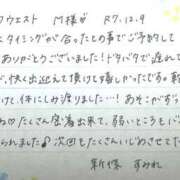 ウエスト M様 R7.12.9
タイミングが合ったとの事でご予約して
ありがとうございました!ドタバタで遅れて
が、快く出迎えて頂けて嬉しかったです。
け、体にしみ渡りました…!あそこがずっ
ね♡たくさん密着出来て、弱いところもバ
られました♪次回もたくさんいじめさせてた
新條 すみれ